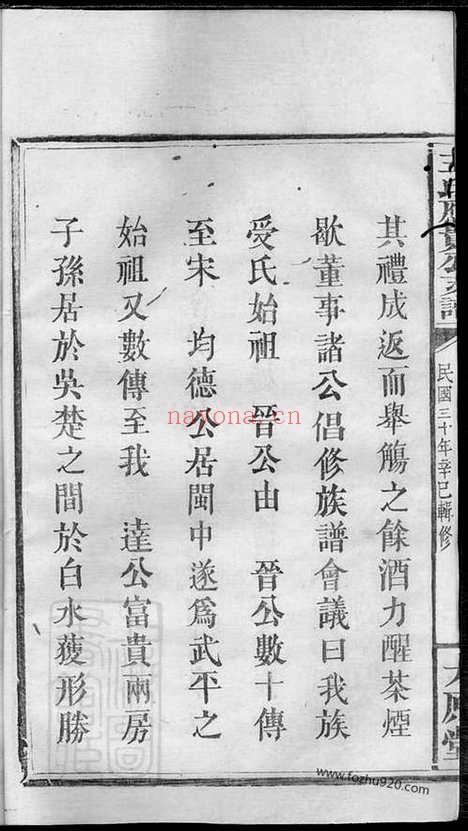 其禮成返而舉觴之餘酒力醒茶煙
歇董事諸公倡修族譜會議曰我族
受氏始祖 晉公由 晉公數十傳
至宋 均德公居閩中遂爲武平之
始祖又數傳至我 達公富貴兩房
子孫居於吳楚之間於白水獲形勝
民國三十年辛巳輯修
nayona.cn
www.fozhu920.com